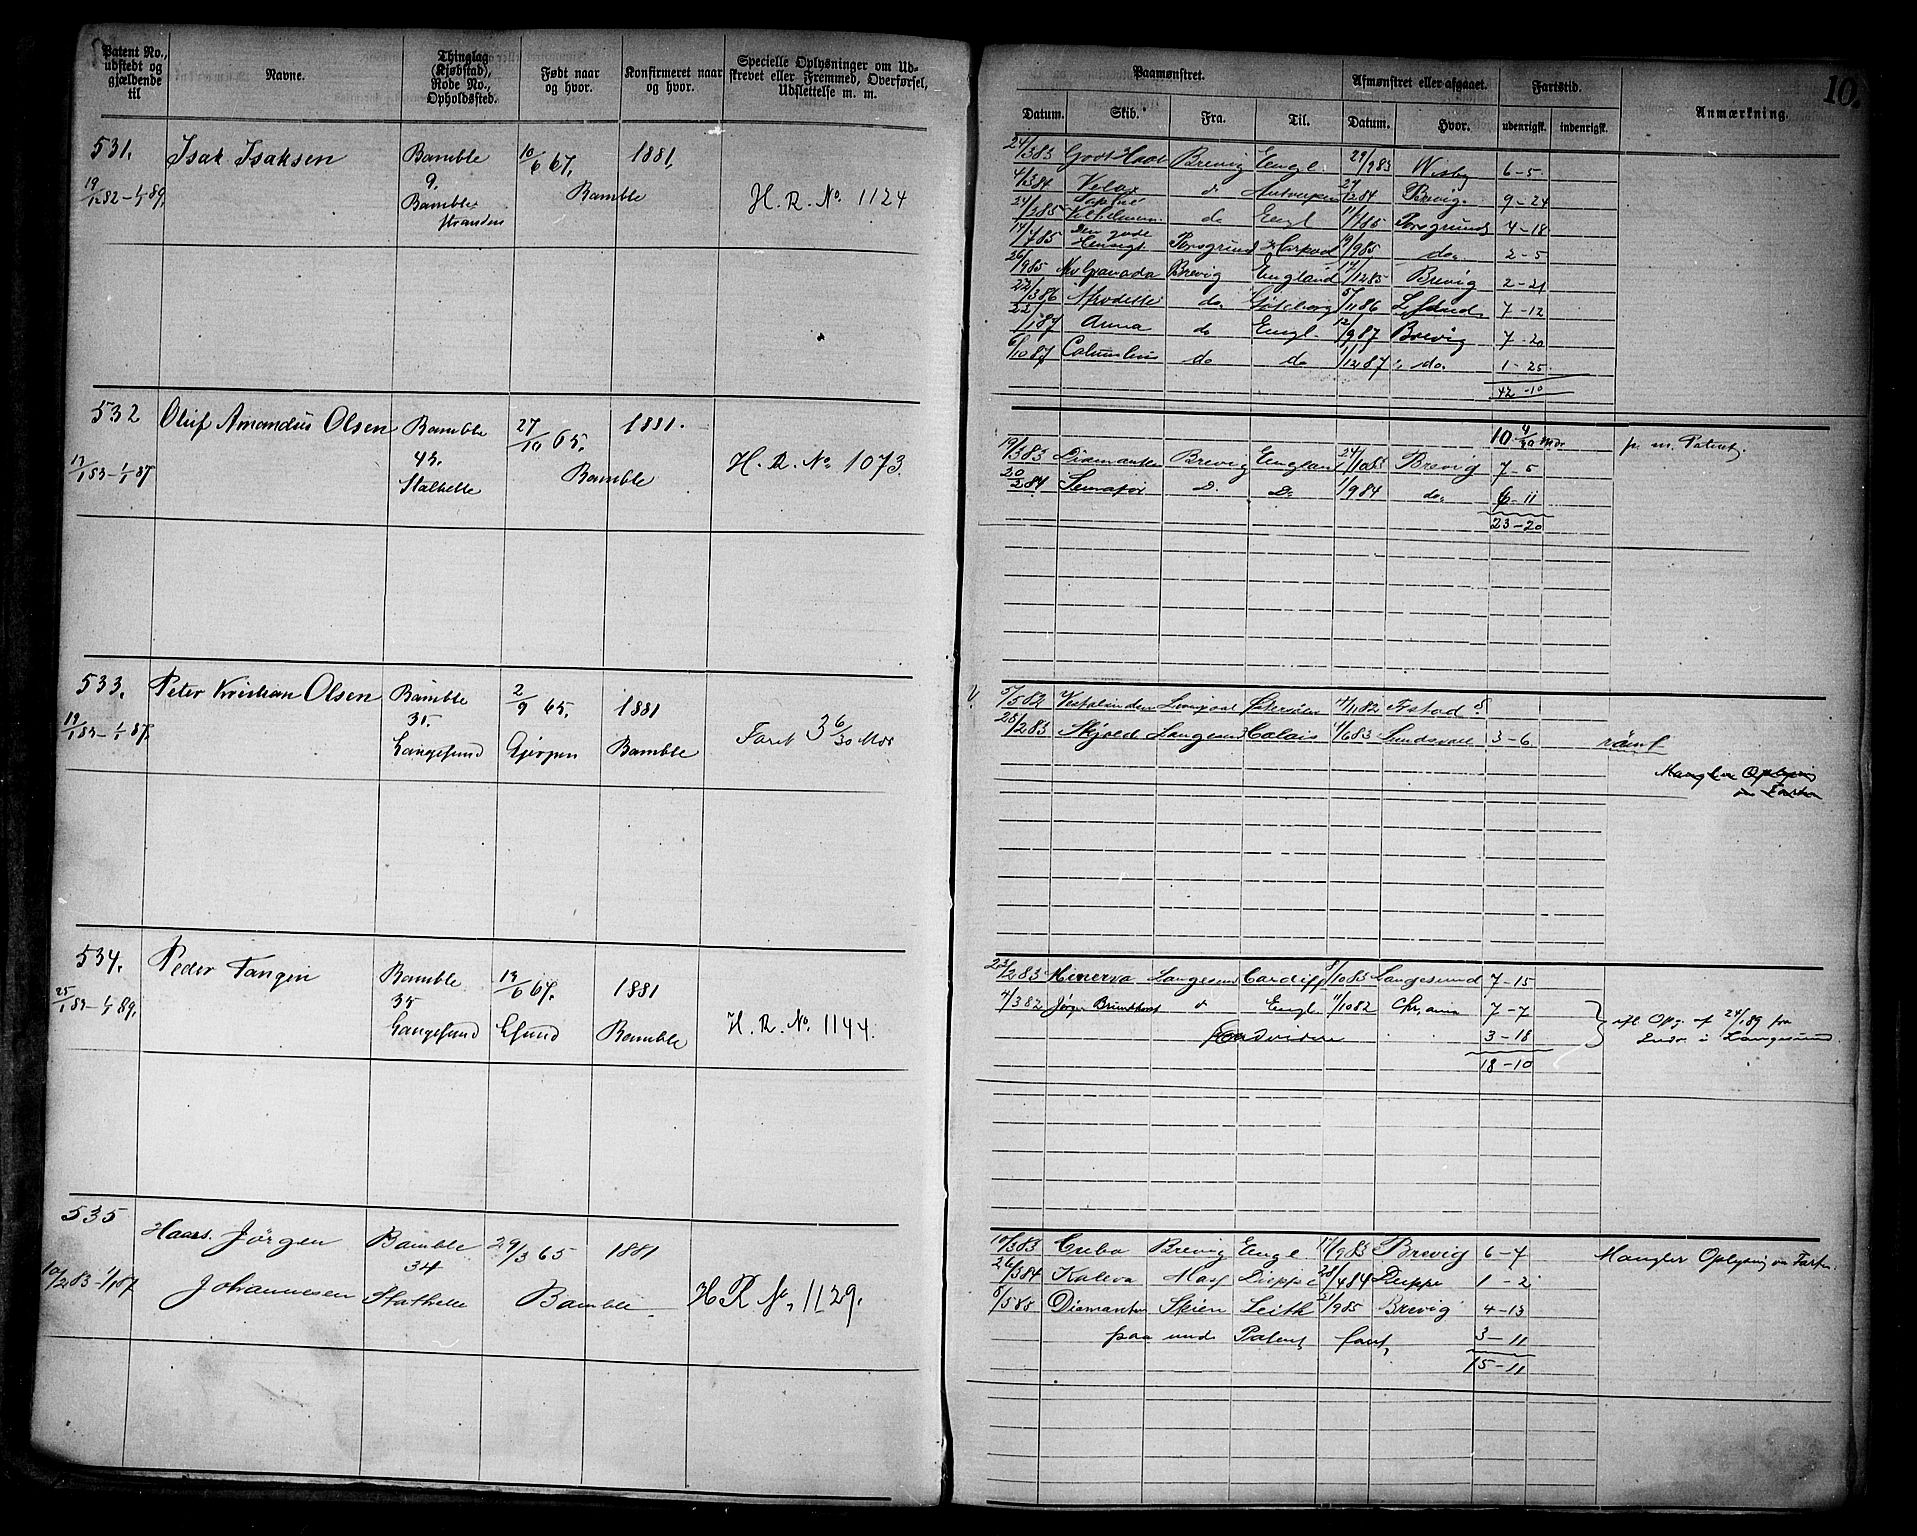 Patent No., udstedt og gjældende til
Navne.
Thinglag (Kjøbstad), Rode No., Opholdssted.
Født naar og hvor.
Konfirmeret naar og hvor.
Specielle Oplysninger om Udskrevet eller Fremmed, Overførsel, Udslettelse m. m.
531. Isak Isaksen Bamble 10/6 67. 1881.
19/12 82 – 1/1 89. 9. Bamble H. R. No. 1124
Bamble
Stranden
532 Oluf Amandus Olsen Bamble 27/10 65. 1881.
45. H. R. No. 1073.
Stathelle Bamble
533. Peter Kristian Olsen Bamble 2/9 65. 1881
19/1 83 – 1/1 87. 35. Faret 3 6/30 Mdr
Langesund Gjerpen Bamble
534. Peder Tangen Bamble 13/6 67. 1881
25/1 83 – 1/1 89. 35 H. R. No. 1144.
Langesund Lsund Bamble
535 Jörgen Bamble 29/3 65 1881
10/2 83 – 1/1 87 34
Johannesen Stathelle Bamble H R No. 1129.
10.
Paamønstret. Afmønstret eller afgaaet. Fartstid.
Datum. Skib. Fra. Til. Datum. Hvor. udenrigsk. indenrigsk. Anmærkning.
24/3 83 Godt Haab Brevig Engl. 29/9 83 Wisby 6–5
4/3 84 Velox d Antwerpen Brevig 9–24
Engl Porsgrund 4–18
14/7 85 Den gode Porsgrund 19/9 85 do. 2–5
26/9 85 Ny Granada Brevig England 17/12 85 Brevig 2–21
22/3 86 Afrodette do. Göteborg 5/11 86 L.sund 7–12
22/1 87 Anna do Engl 12/9 87 Brevig 7–20
6/10 87 Columbus do do 1/12 87 do. 1–25
42–10
10 4/30 Mdr. p. m. Patent.
19/3 83 Diamanten Brevig England 24/10 83 Brevig 7–5
20/2 84 Semafor D. D. 1/9 84 do. 6–11
23–20
5/5 82 Vestalinden Liverpool 4/11 82
28/2 83 Skjold Langesund Calais 4/6 83 Sundsvall 3–6 römt
Mangler Oplysning
om Farten
23/2 83 Minerva Langesund Cardiff 8/10 83 Langesund 7–15
4/3 82 Jørgen d Engl 11/10 82 Chr.ania 7–7
3–18
24/1 89 fra
i Langesund
18–10
10/3 83 Cuba Brevig Engl 17/9 83 Brevig 6–7 Mangler Oplysning om Farten
26/3 84 Kaleva Dieppe 28/4 84 Dieppe 1–2
8/5 85 Diamanten Skien Leith 21/9 85 Brevig 4–13
paa Patent fart, 3–11
15–11